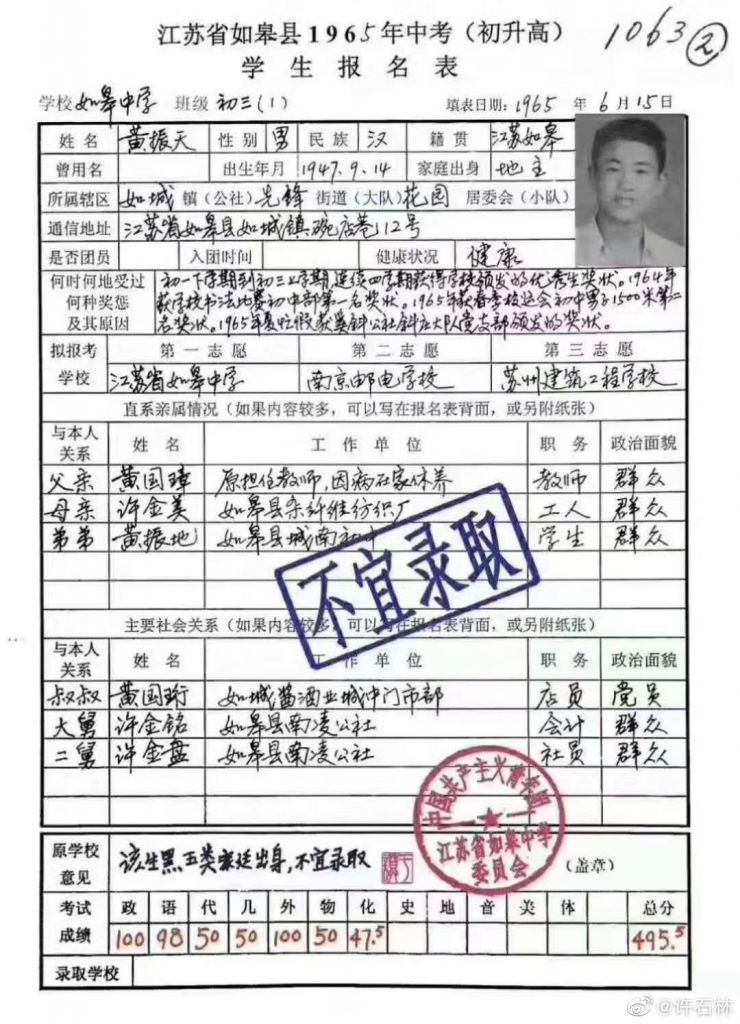 江苏省如皋县1965年中考（初升高）
1063 ②
学生报名表
学校 如皋中学 班级 初三(1) 填表日期:1965 年 6月15日
姓名 黄振天 性别 男 民族 汉 籍贯 江苏如皋
曾用名 出生年月 1947.9.14 家庭出身 地主
所属辖区 如城 镇（公社）先锋 街道（大队）花园 居委会（小队）
通信地址 江苏省如皋县如城镇碗店巷12号
是否团员 入团时间 健康状况 健康
何时何地受过何种奖惩及其原因
初一下学期到初三上学期连续四学期获得学校颁发的优秀生奖状。1964年
获学校书法比赛初中部第一名奖状。1965年获春季校运会初中男子1500米第二
名奖状。1965年夏忙假获奚斜公社斜庄大队党支部颁发的奖状。
拟报考学校 第一志愿 第二志愿 第三志愿
江苏省如皋中学 南京邮电学校 苏州建筑工程学校
直系亲属情况（如果内容较多，可以写在报名表背面，或另附纸张）
与本人关系 姓名 工作单位 职务 政治面貌
父亲 黄国璋 原担任教师，因病在家休养 教师 群众
母亲 许金美 如皋县杂纤维纺织厂 工人 群众
弟弟 黄振地 如皋县城南初中 学生 群众
不宜录取
主要社会关系（如果内容较多，可以写在报名表背面，或另附纸张）
与本人关系 姓名 工作单位 职务 政治面貌
叔叔 黄国珩 如城酱酒业城中门市部 店员 党员
大舅 许金铭 如皋县南凌公社 会计 群众
二舅 许金盘 如皋县南凌公社 社员 群众
中国共产主义青年团
江苏省如皋中学
委员会
原学校意见 该生黑五类家庭出身，不宜录取 （盖章）
考试成绩 政 语 代 几 外 物 化 史 地 音 美 体 总分
100 98 50 50 100 50 47.5 495.5
录取学校
@许石林